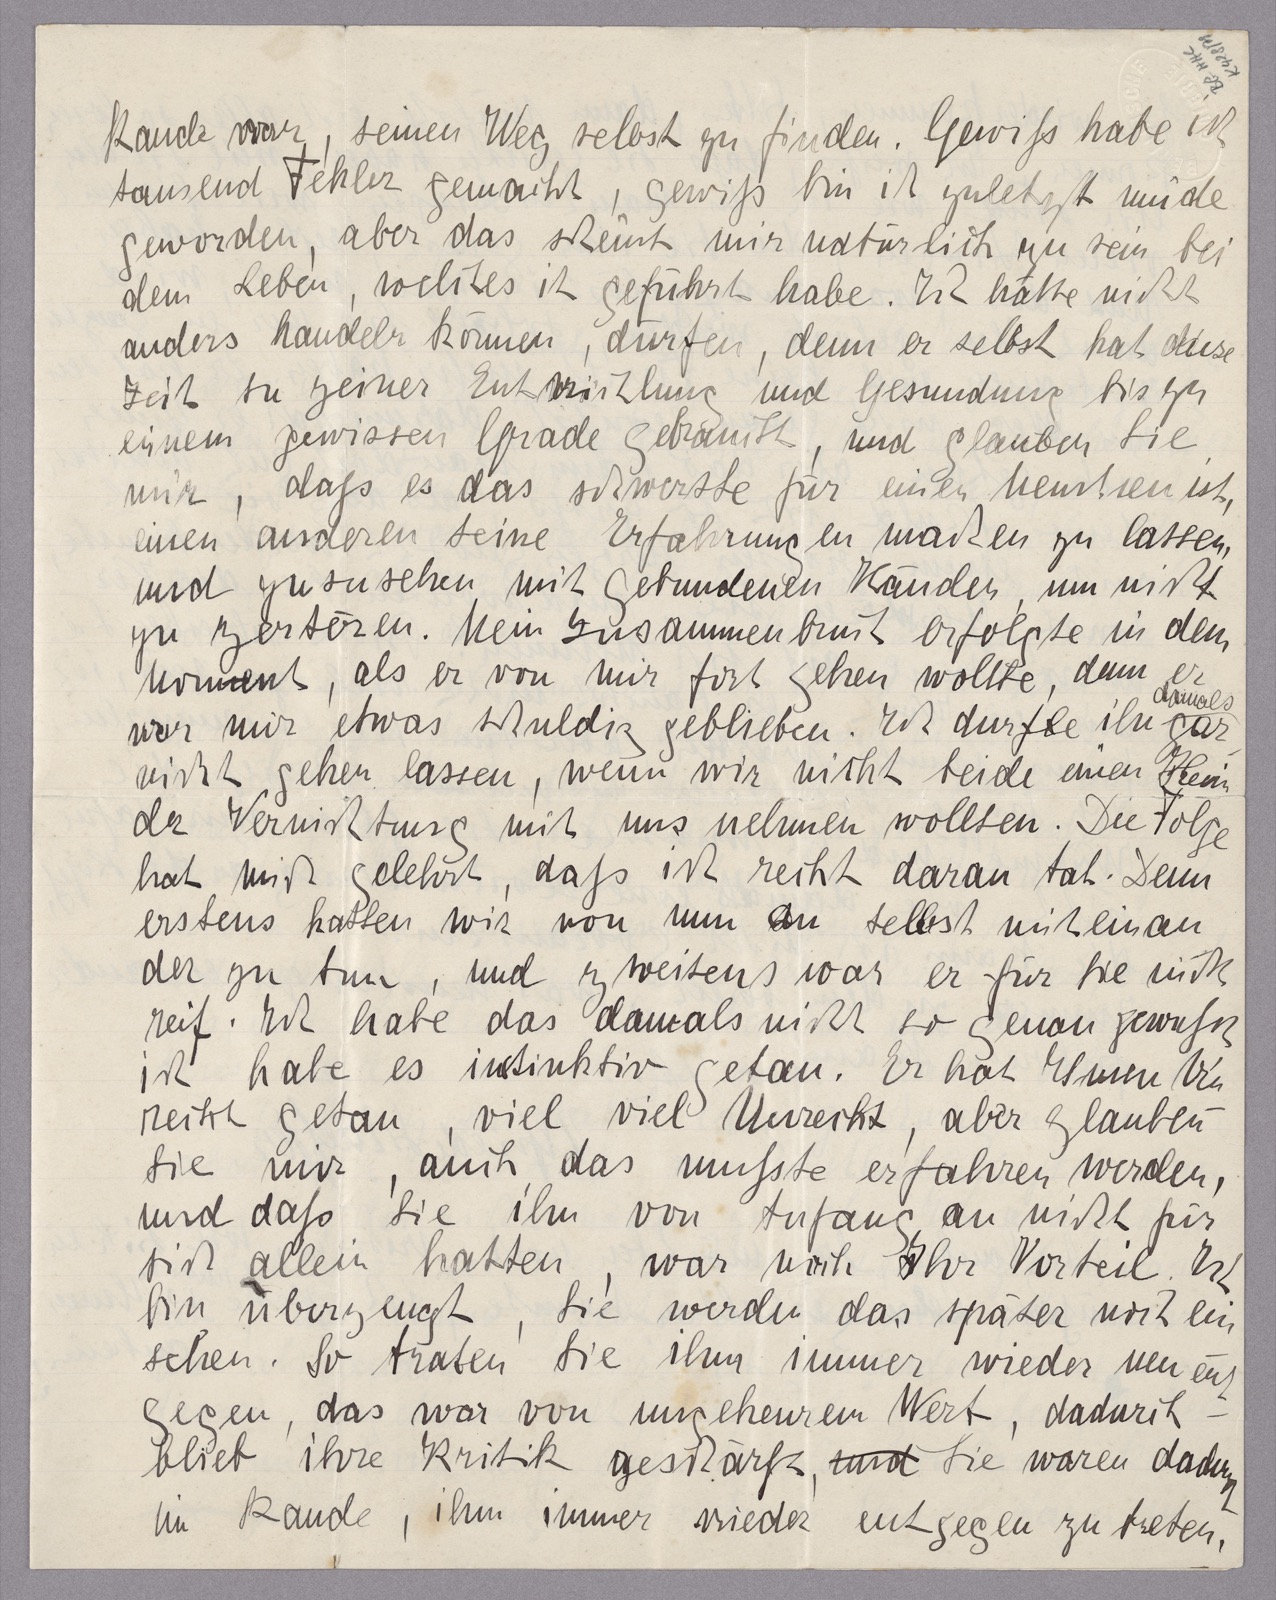 Rande war, seinen Weg selbst zu finden. Gewiß habe ich
tausend Fehler gemacht, gewiß bin ich zuletzt müde
geworden, aber das scheint mir natürlich zu sein bei
dem Leben, welches ich geführt habe. Ich hätte nicht
anders handeln können, dürfen, denn er selbst hat diese
Zeit zu seiner Entwicklung und Gesundung bis zu
einem gewissen Grade gebraucht, und glauben Sie
mir, daß es das schwerste für einen Menschen ist,
einen anderen seine Erfahrungen machen zu lassen,
und zuzusehen mit gebundenen Händen, um nicht
zu zerstören. Mein Zusammenbruch erfolgte in dem
Moment, als er von mir fort gehen wollte, denn er
war mir etwas schuldig geblieben. Ich durfte ihn damals gar
nicht gehen lassen, wenn wir nicht beide einen Keim
der Vernichtung mit uns nehmen wollten. Die Folge
hat mich gelehrt, daß ich recht daran tat. Denn
erstens hatten wir von nun an selbst miteinan
der zu tun, und zweitens war er für Sie nicht
reif. Ich habe das damals nicht so genau gewußt
ich habe es instinktiv getan. Er hat Ihnen Un
recht getan, viel viel Unrecht, aber glauben
Sie mir, auch das mußte erfahren werden,
und daß Sie ihn von Anfang an nicht für
sich allein hatten, war noch Ihr Vorteil. Ich
bin überzeugt, Sie werden das später noch ein
sehen. So traten Sie ihm immer wieder neu ent
gegen, das war von ungeheurem Wert, dadurch –
blieb ihre Kritik geschärft, und Sie waren dadurch
im Rande, ihm immer wieder entgegen zu treten,